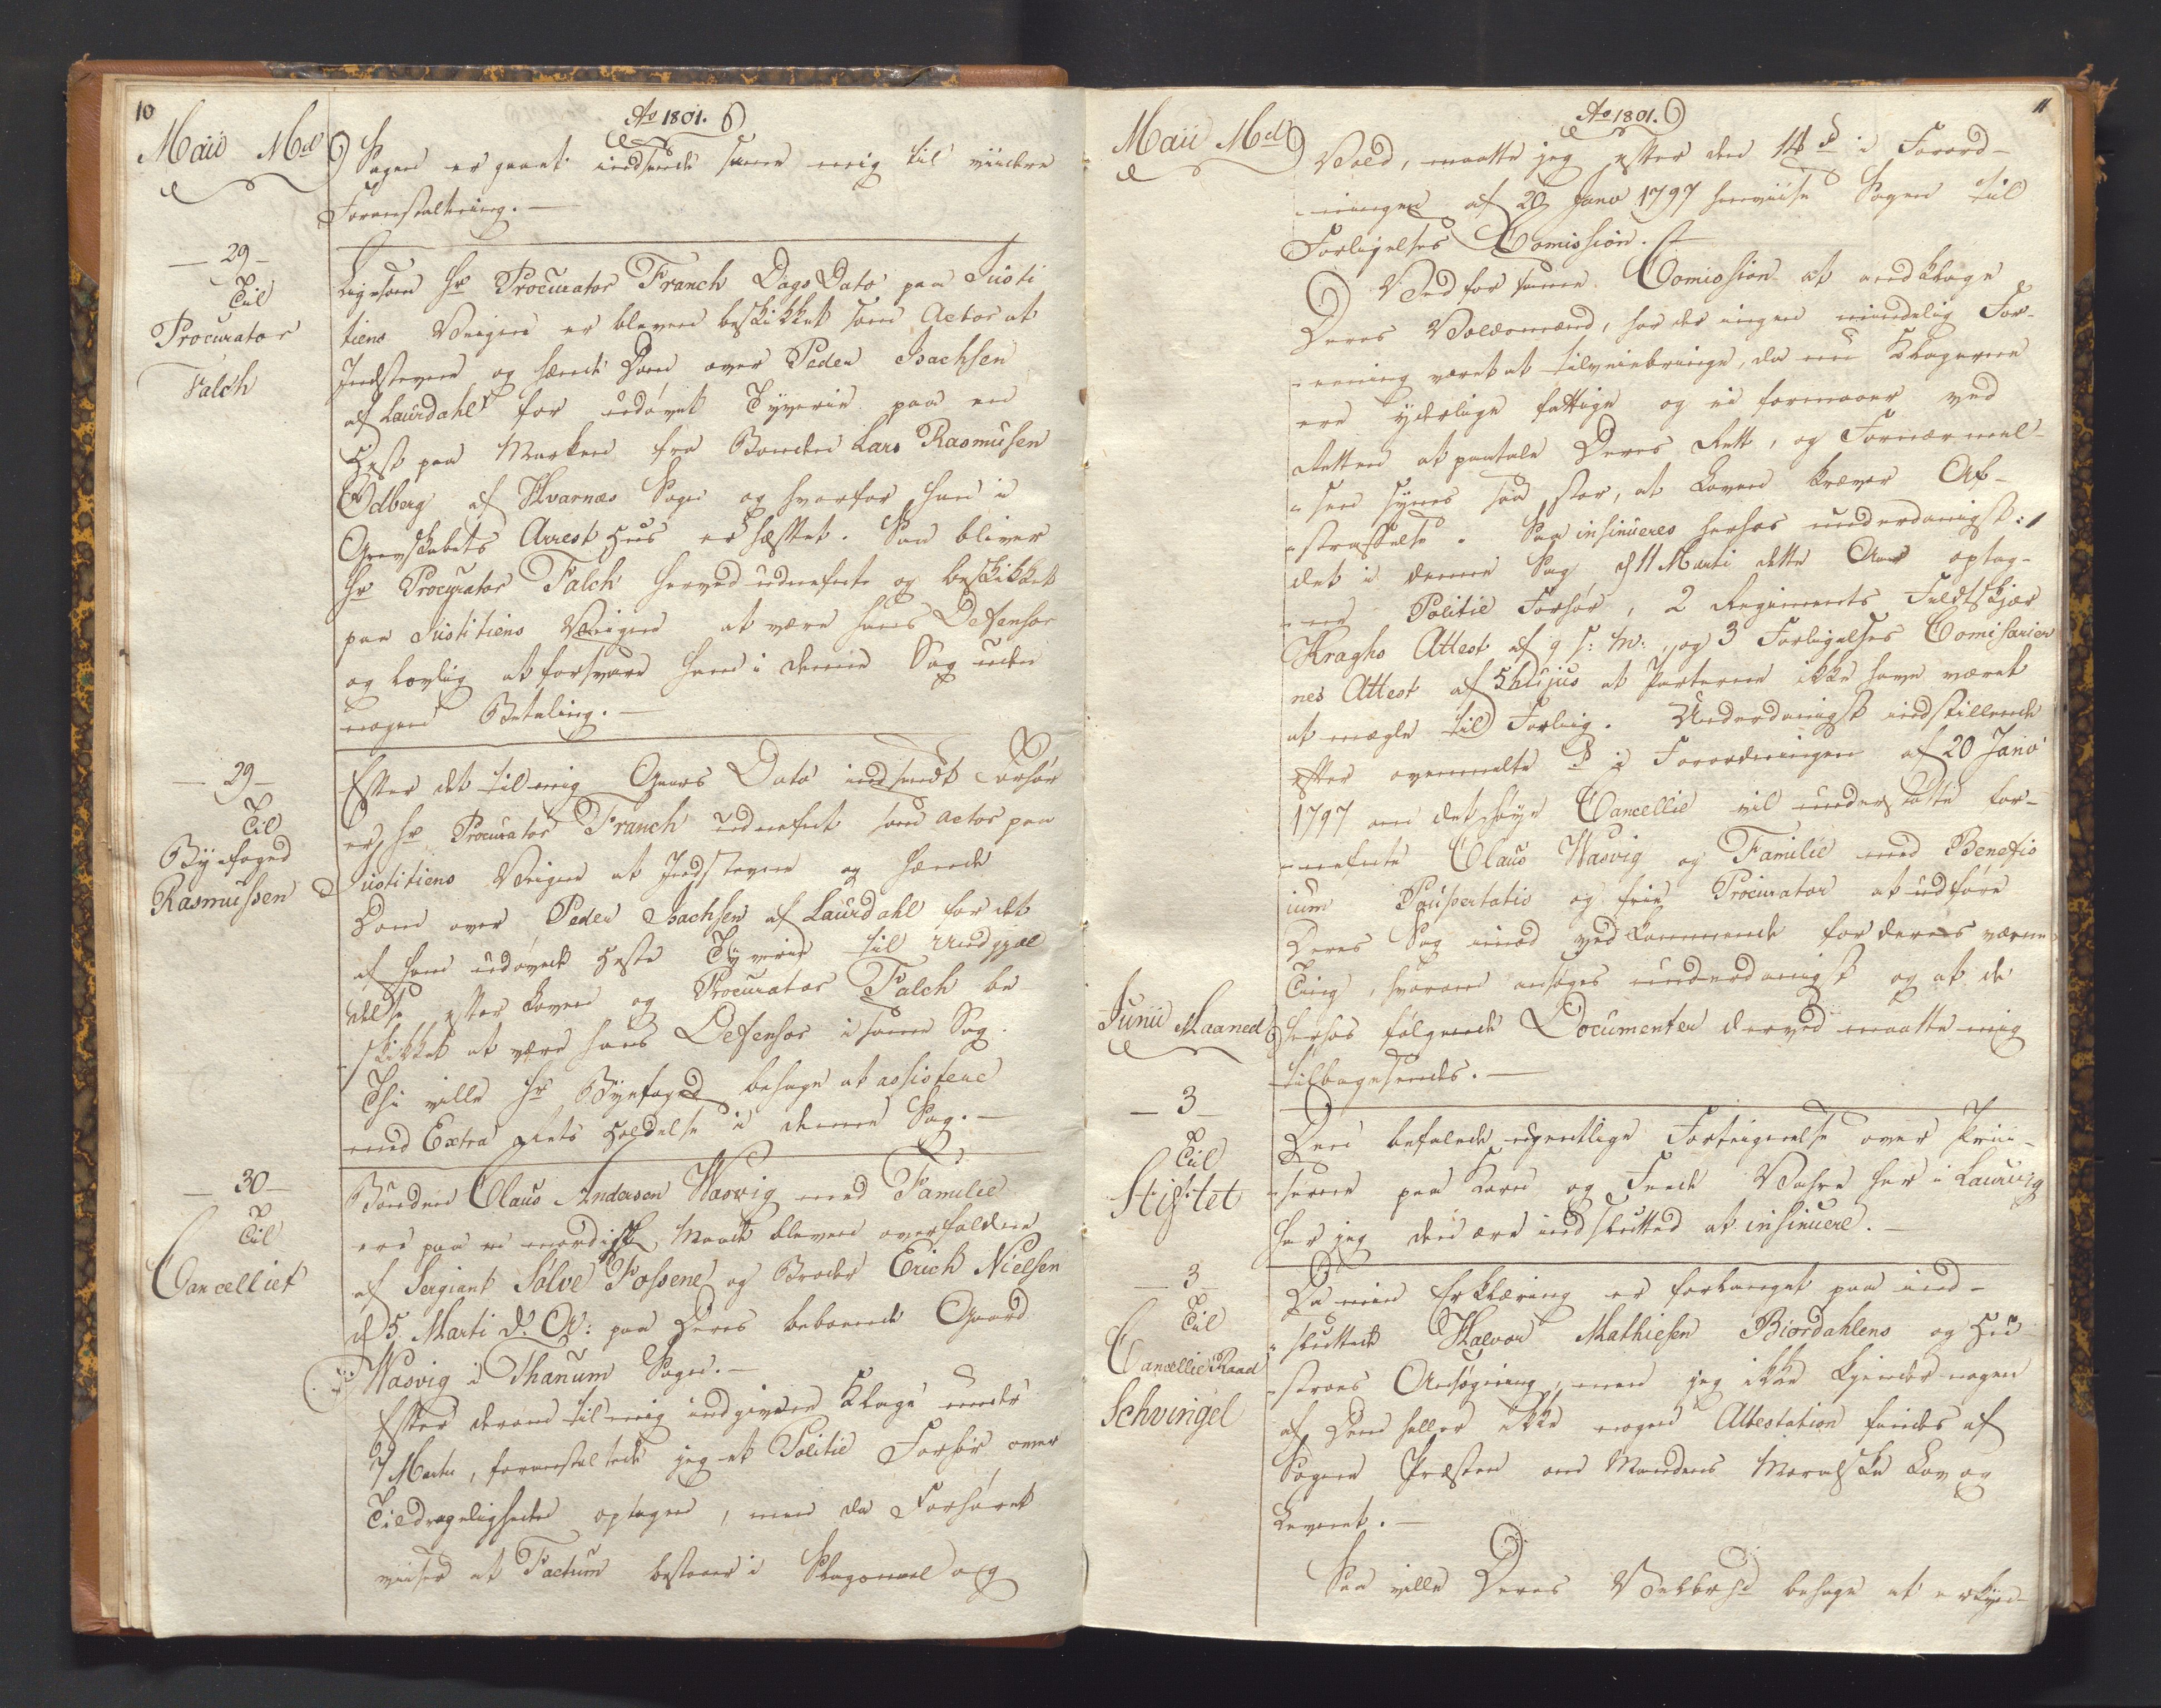 10
Ao 1801.
Maii Md
Sagen er grant indsendt samme mig til viidere
Foranstaltning. —
— 29 —
Til
Procurator
Falch
Ligesom Hr Procurator Franch Dags Dato paa Justi
tiens Veigne er bleven beskikket som Actor at
Indstevne og hænde Dom over Peder Isachsen
af Laurdahl for udövet Tyverie paa en
Hest paa Marken fra Bonden Lars Rasmusen
Odberg af Hvarnæs Sogn og hvorfor han i
Grevskabets Arrest Huus er hæftet. Saa bliver
Hr Procurator Falch herved udnefnte og beskikket
paa Justitiens Veigne at være hans Defensor
og lovlig at forsvare ham i denne Sag uden
nogen Betaling. —
— 29 —
Til
Byefoged
Rasmussen
Efter det til mig Gaars Dato indsendt Forhör
er Hr Procurator Franch udnefnt som actor paa
Justitiens Veigne at Indstevne og hænde
Dom over Peder Isachsen af Laurdahl for det
af ham udövede Heste Tyverie til Undgjæl
delse efter Loven og Procurator Falch be
skikket at være hans Defensor i samme Sag.
Thi ville Hr Byefoged behage at assistere
med Extra Rets Holdelse i denne Sag. —
— 30 —
Til
Cancelliet
Bonden Claus Anderson Wasvig med Familie
ere paa en mordisk Maade bleven overfaldne
af Sergiant Sölve Fossene og Broder Erich Nielsen
d 5 Marti d. A: paa Deres beboende Gaard
Wasvig i Thanum Sogn. —
Efter derom til mig indgiven Klage under
7 Marti, foranstaltede jeg et Politie Forhör over
Tildrageligheden optagen, men da Forhöret
viiser at Factum bestaaer i Slagsmaal og
11
Ao 1801.
Maii Md
Vold, maatte jeg efter den 14 § i Forord-
ningen af 20 Janv 1797 henviise Sagen til
Forligelses Comission.
Ved for samme Comission at andklage
Deres Voldsmænd, har der ingen mindelig For-
eening været at tilveiebringe, da nu Klagerne
ere yderlige fattige og ei formaaer ved
Retten at paatale Deres Rett, og Fornærmel-
sen synes saa stor, at Loven kræver Af-
straffelse. Saa insinueres herhos underdanigst: 1
det i denne Sag d 11 Marti dette Aar optag-
ne Politie Forhör, 2 Regiments Feldtskjær
Kraghs Attest af 9 s: M:, og 3 Forligelses Comisarier
nes Attest af 5 hujus at Parterne ikke have været
at megle til Forliig. Underdanigst indstillende
efter ovenmelte § i Forordningen af 20 Janv
1797 om det höye Cancellie vil understötte for-
nefnte Claus Wasvig og Familie med Benefis
ium Paupertatis og frie Procurator at udföre
Deres Sag imod vedkommende for deres værne
Ting, hvorom ansöges underdanigst og at de
herhos fölgende Documenter derved maatte mig
tilbagesendes. —
Junii Maaned
— 3 —
Til
Stiftet
Den befalede ugentlige Fortegnelse over Prii-
serne paa Korn og Fende Vahre her i Laurvig
har jeg den ære indsluttet at insinuere. —
— 3 —
Til
Cancellie Raad
Schvingel
Da min Erklæring er forlanget paa ind-
sluttede Halvor Mathiesen Biordahlens og Hu
stroes Ansögning, men jeg ikke kjender nogen
af Dem heller ikke nogen Attestation findes af
Sogne Præsten om Mandens Moralske Lov og
Levnet. —
Saa ville Deres Velbhd behage at